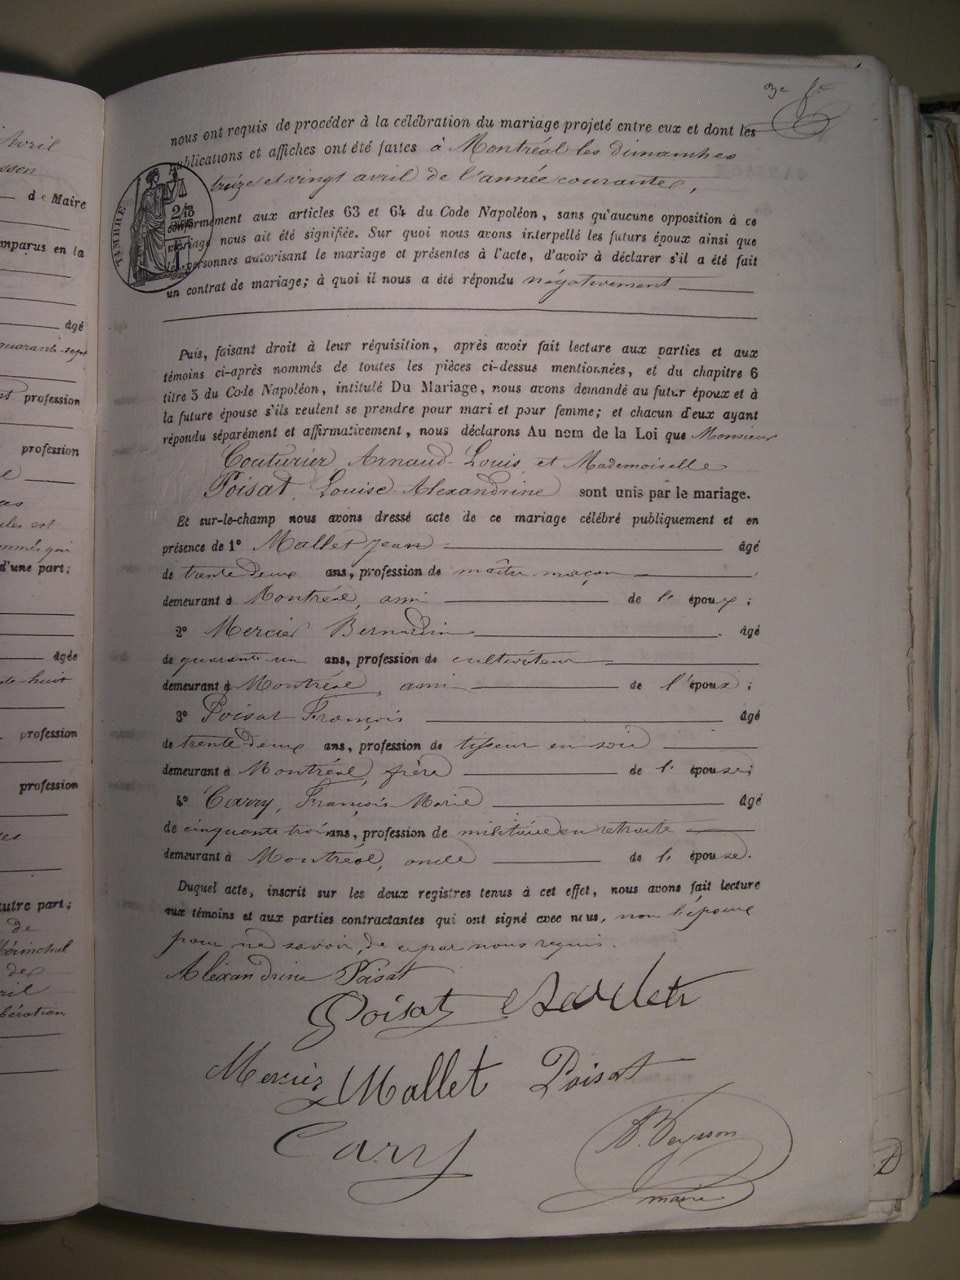 Avril
de Maire
comparus en la
âgé
quarante-sept
profession
profession
d'une part;
âgée
profession
profession
autre part;
de
de
3e fe
nous ont requis de procéder à la célébration du mariage projeté entre eux et dont les
publications et affiches ont été faites à Montréal les dimanches
treize et vingt avril de l'année courante,
conformément aux articles 63 et 64 du Code Napoléon, sans qu'aucune opposition à ce
mariage nous ait été signifiée. Sur quoi nous avons interpellé les futurs époux ainsi que
les personnes autorisant le mariage et présentes à l'acte, d'avoir à déclarer s'il a été fait
un contrat de mariage; à quoi il nous a été répondu négativement
TIMBRE
Puis, faisant droit à leur réquisition, après avoir fait lecture aux parties et aux
témoins ci-après nommés de toutes les pièces ci-dessus mentionnées, et du chapitre 6
titre 5 du Code Napoléon, intitulé Du Mariage, nous avons demandé au futur époux et à
la future épouse s'ils veulent se prendre pour mari et pour femme; et chacun d'eux ayant
répondu séparément et affirmativement, nous déclarons Au nom de la Loi que Monsieur
Couturier Arnaud-Louis et Mademoiselle
Poisat, Louise Alexandrine sont unis par le mariage.
Et sur-le-champ nous avons dressé acte de ce mariage célébré publiquement et en
présence de 1° Mallet Jean âgé
de trente deux ans, profession de maître maçon
demeurant à Montréal, ami de l'époux;
2° Mercier Bernardin âgé
de quarante un ans, profession de cultivateur
demeurant à Montréal, ami de l'époux;
3° Poisat François âgé
de trente deux ans, profession de tisseur en soie
demeurant à Montréal, frère de l'épouse;
4° Carry, François Marie âgé
de cinquante trois ans, profession de militaire en retraite
demeurant à Montréal, oncle de l'épouse.
Duquel acte, inscrit sur les deux registres tenus à cet effet, nous avons fait lecture
aux témoins et aux parties contractantes qui ont signé avec nous, non l'époux
pour ne savoir, de ce par nous requis.
Alexandrine Poisat
Poisat
Mercier Mallet Poisat
Carry
B. Veysson
maire